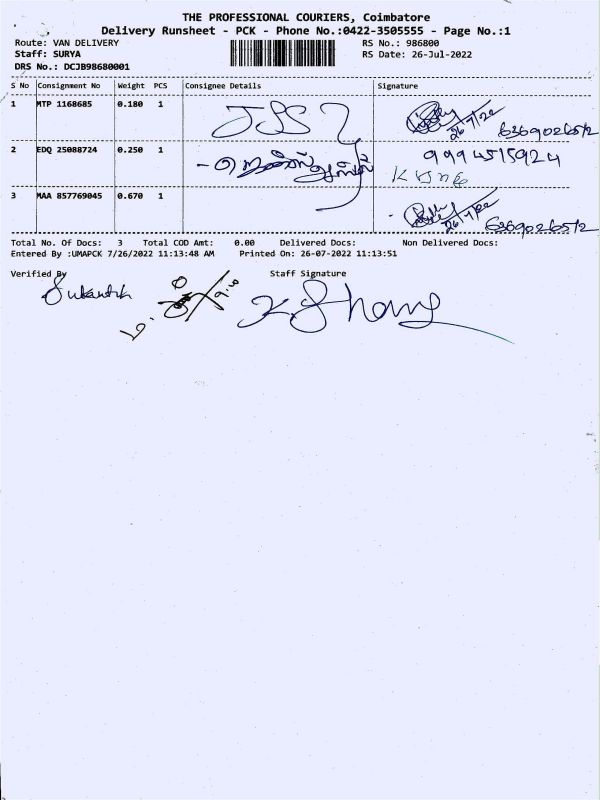 THE PROFESSIONAL COURIERS, Coimbatore
Delivery Runsheet - PCK - Phone No.:0422-3505555 - Page No.:1
Route: VAN DELIVERY
RS No.: 986800
Staff: SURYA
RS Date: 26-Jul-2022
DRS No.: DCJB98680001
S No Consignment No Weight PCS Consignee Details Signature
1 MTP 1168685 0.180 1
26/7/22
6369026512
2 EDQ 25088724 0.250 1
9994515924
3 MAA 857769045 0.670 1
26/7/22
6369026512
Total No. Of Docs: 3 Total COD Amt: 0.00 Delivered Docs: Non Delivered Docs:
Entered By :UMAPCK 7/26/2022 11:13:48 AM Printed On: 26-07-2022 11:13:51
Verified By Staff Signature